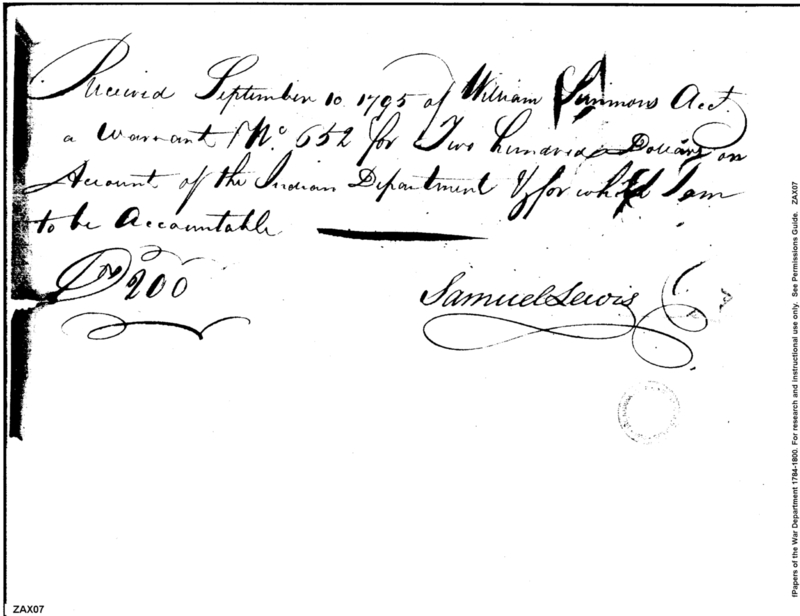 Received September 10 1795 of William Simmons Acct
a Warrant No. 652 for Two hundred Dollars on
Account of the Indian Department & for which I am
to be Accountable
Ds 200
Samuel Lewis
ZAX07
fPapers of the War Department 1784-1800. For research and instructional use only. See Permissions Guide. ZAX07